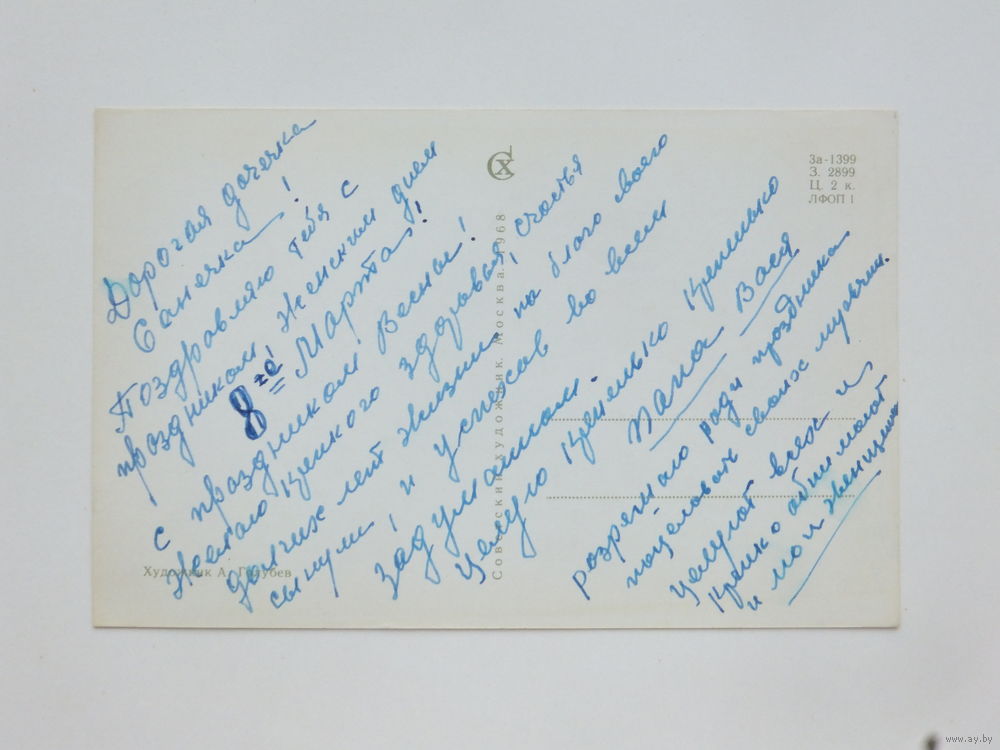 Дорогая дочечка
Санечка!
Поздравляю тебя с
праздником Женским днем
8 ге Марта!
с праздником Весны!
Желаю крепкого здоровья, счастья
долгих лет жизни на благо своего
сыну! и успехов во всем
задуманном.
Целую крепенько крепенько
папа Вася
разрешаю ради праздника
поцеловать своих мужчин.
целуют всех и
крепко обнимают
и мои женщины
СХ
За-1399
З. 2899
Ц. 2 к.
ЛФОП 1
Советский художник. Москва. 1968
Художник А. Голубев
www.ay.by